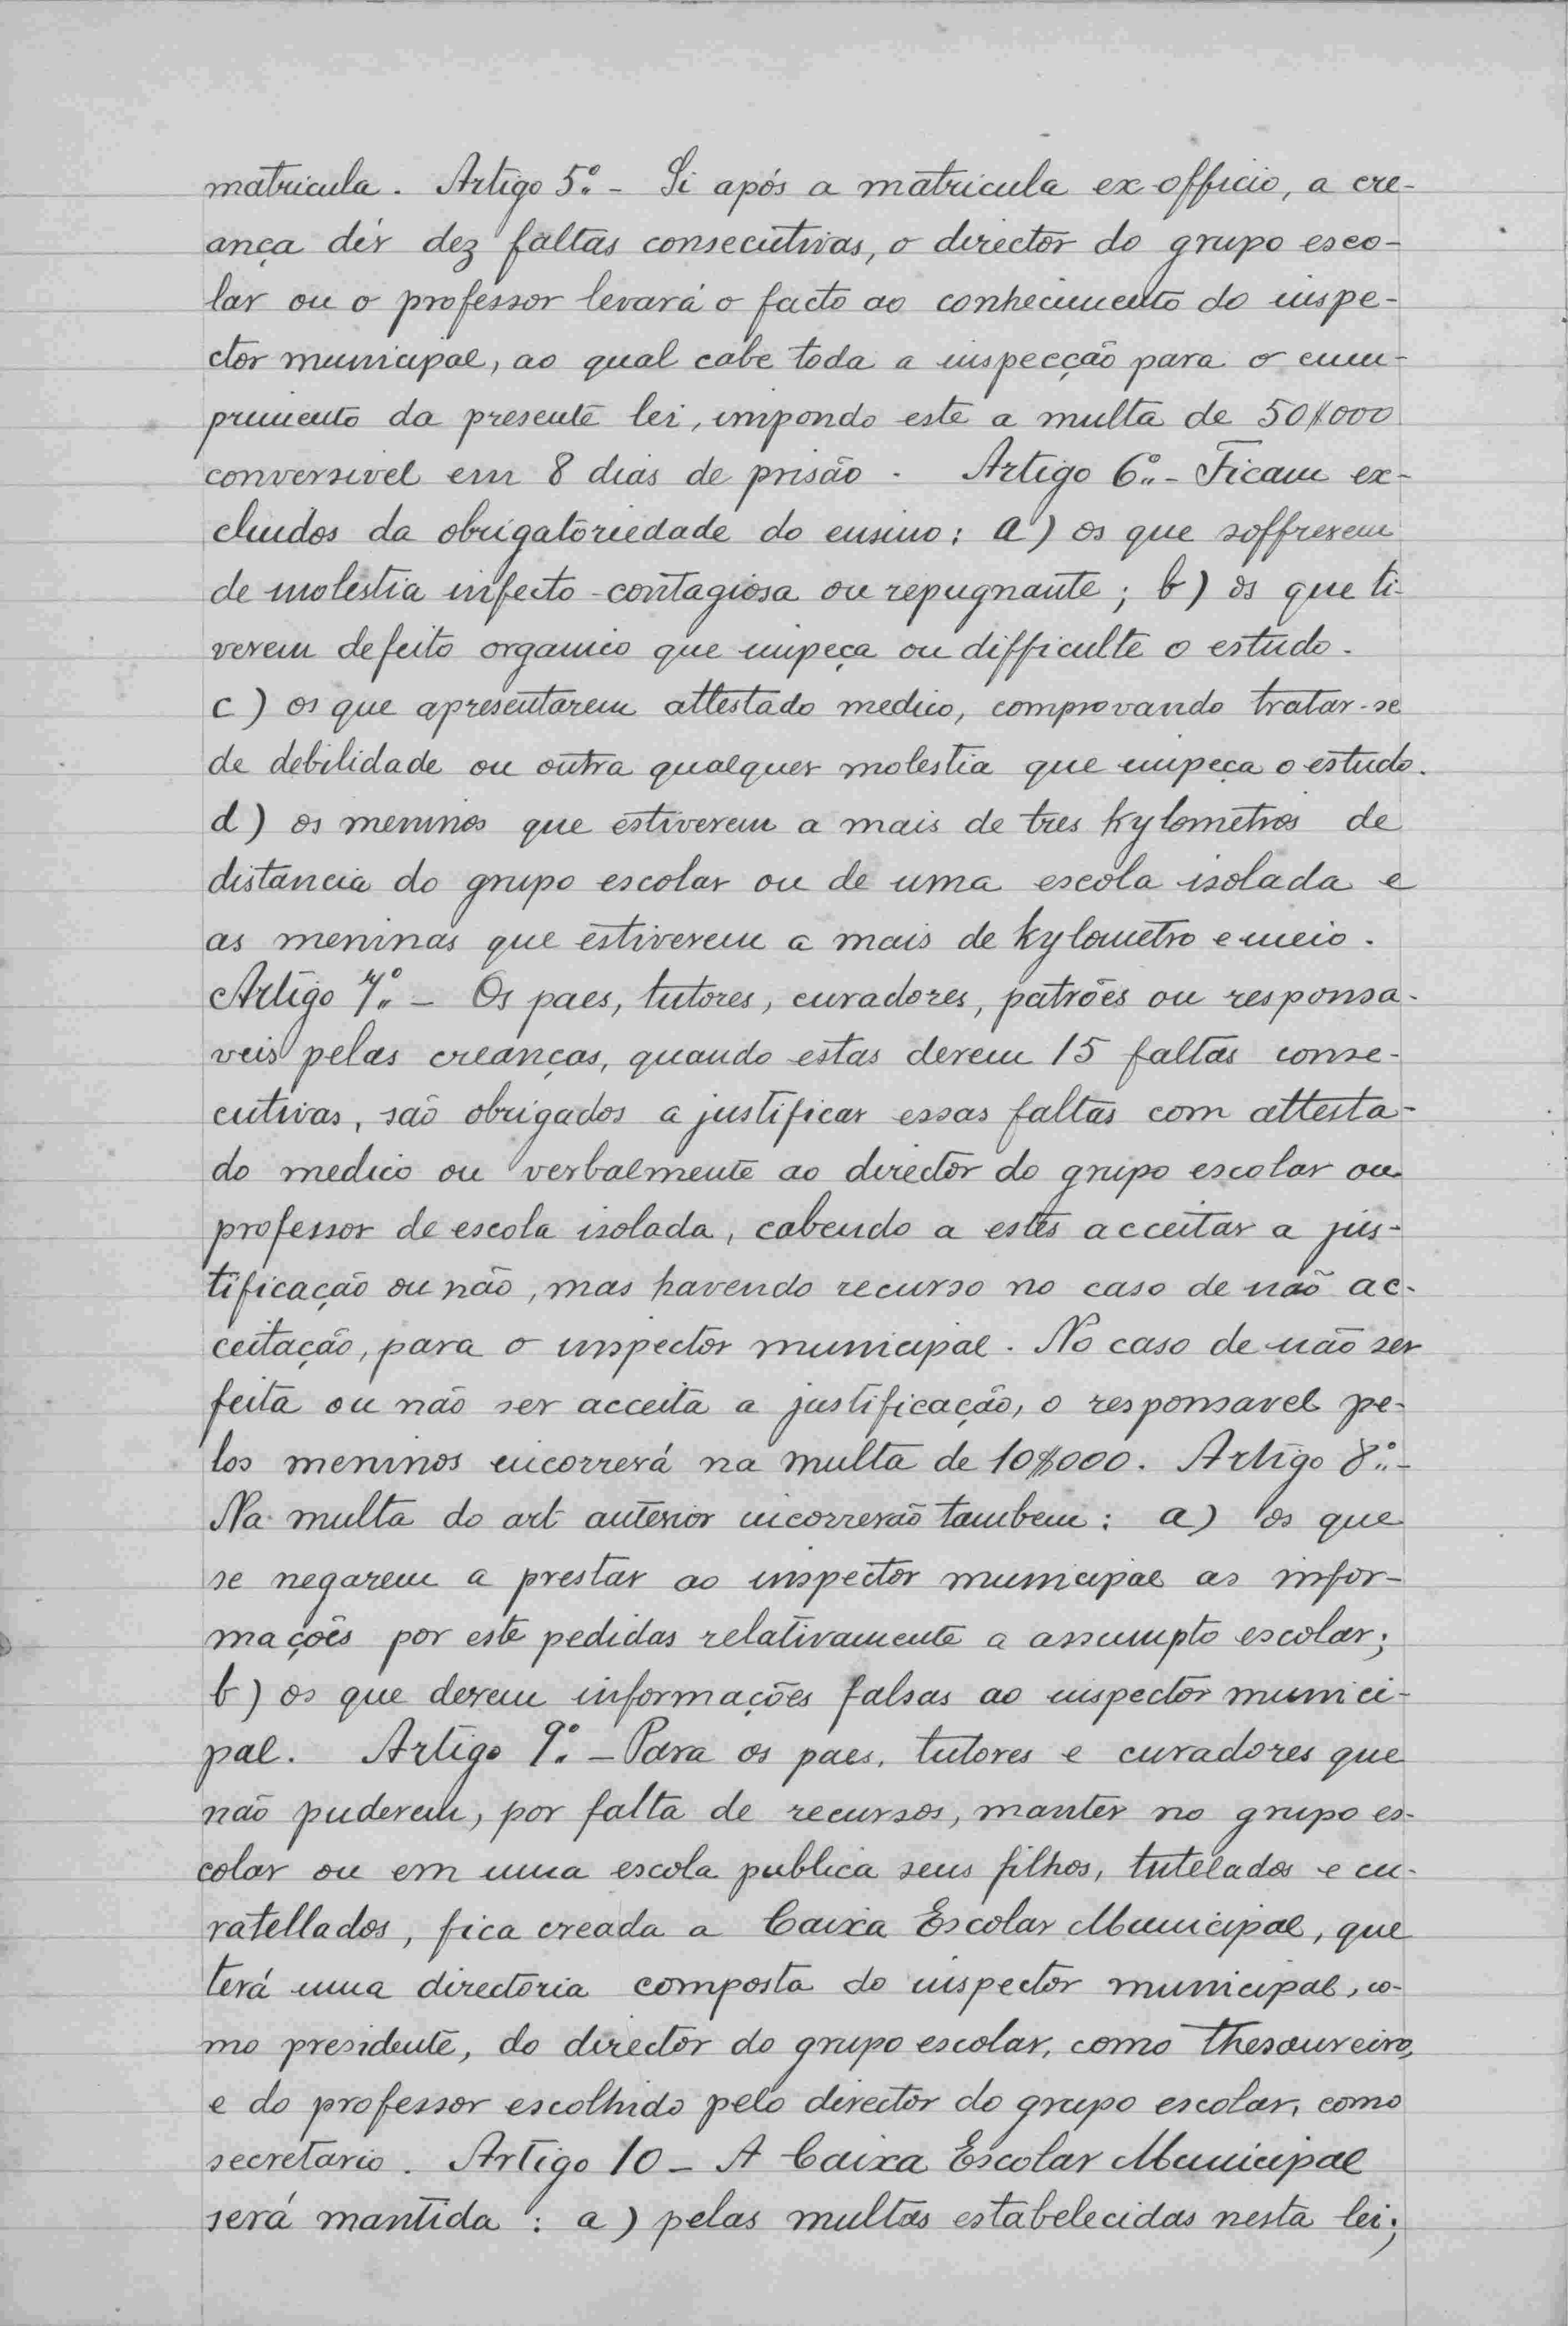 matricula. Artigo 5º.- Si após a matricula ex-officio, a cre-
ança dér dez faltas consecutivas, o director do grupo esco-
lar ou o professor levará o facto ao conhecimento do inspe-
ctor municipal, ao qual cabe toda a inspecção para o cum-
primento da presente lei, impondo este a multa de 50$000
conversivel em 8 dias de prisão. Artigo 6º.- Ficam ex-
cluidos da obrigatoriedade do ensino: a) os que soffrerem
de molestia infecto-contagiosa ou repugnante; b) os que ti-
verem defeito organico que impeça ou difficulte o estudo.
c) os que apresentarem attestado medico, comprovando tratar-se
de debilidade ou outra qualquer molestia que impeça o estudo.
d) os meninos que estiverem a mais de tres kylometros de
distancia do grupo escolar ou de uma escola isolada e
as meninas que estiverem a mais de kylometro e meio.
Artigo 7º.- Os paes, tutores, curadores, patrões ou responsa-
veis pelas creanças, quando estas derem 15 faltas conse-
cutivas, são obrigados a justificar essas faltas com attesta-
do medico ou verbalmente ao director do grupo escolar ou
professor de escola isolada, cabendo a estes acceitar a jus-
tificação ou não, mas havendo recurso no caso de não ac-
ceitação, para o inspector municipal. No caso de não ser
feita ou não ser acceita a justificação, o responsavel pe-
los meninos incorrerá na multa de 10$000. Artigo 8º.-
Na multa do art anterior incorrerão tambem: a) os que
se negarem a prestar ao inspector municipal as infor-
mações por este pedidas relativamente a assumpto escolar;
b) os que derem informações falsas ao inspector munici-
pal. Artigo 9º.- Para os paes, tutores e curadores que
não puderem, por falta de recursos, manter no grupo es-
colar ou em uma escola publica seus filhos, tutelados e cu-
ratellados, fica creada a Caixa Escolar Municipal, que
terá uma directoria composta do inspector municipal, co-
mo presidente, do director do grupo escolar, como thesoureiro,
e do professor escolhido pelo director do grupo escolar, como
secretario. Artigo 10- A Caixa Escolar Municipal
será mantida: a) pelas multas estabelecidas nesta lei;